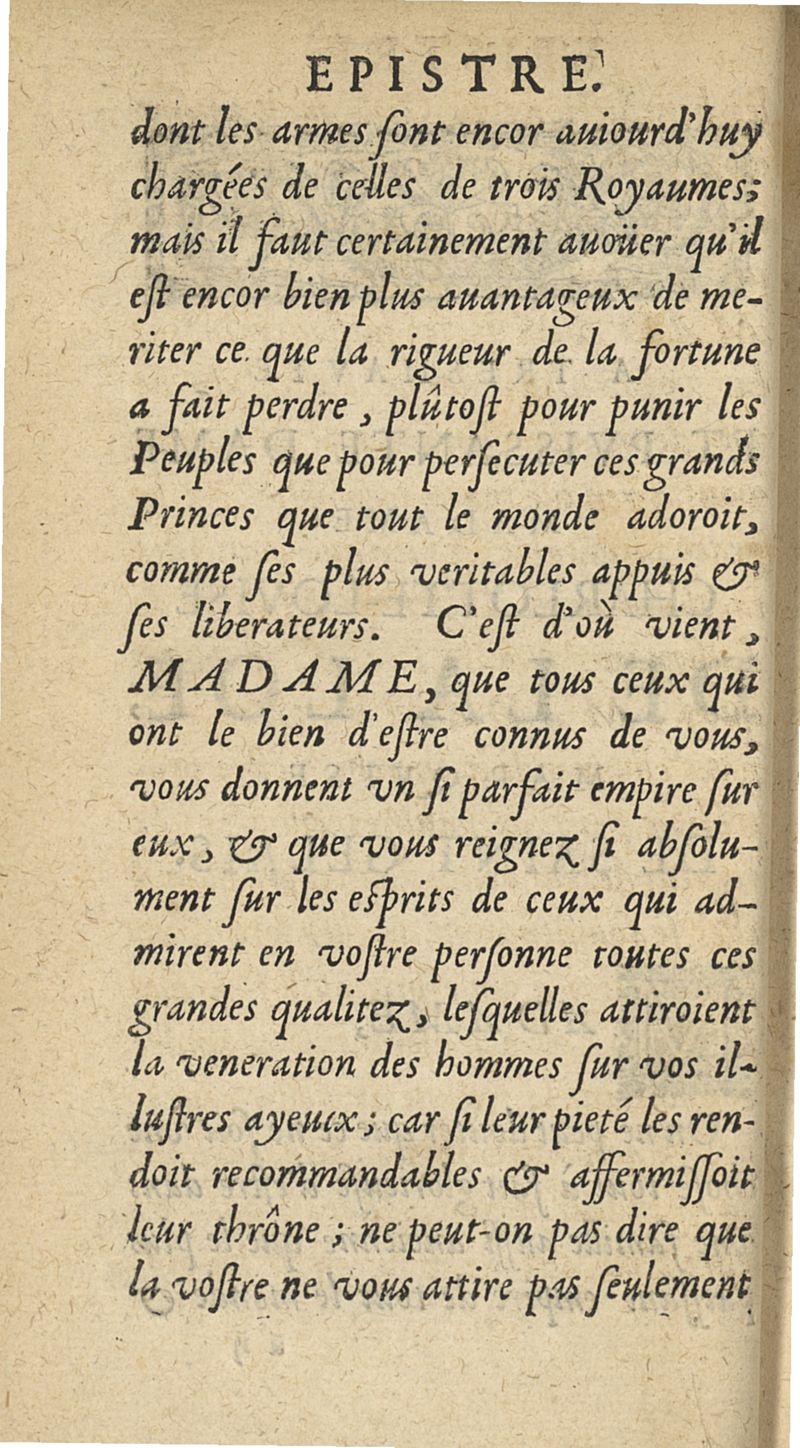 EPISTRE.
dont les armes ſont encor auiourd'huy
chargées de celles de trois Royaumes;
mais il faut certainement auoüer qu'il
eſt encor bien plus auantageux de me-
riter ce que la rigueur de la fortune
a fait perdre, plûtoſt pour punir les
Peuples que pour perſecuter ces grands
Princes que tout le monde adoroit,
comme ſes plus veritables appuis &
ſes liberateurs. C'eſt d'où vient,
MADAME, que tous ceux qui
ont le bien d'eſtre connus de vous,
vous donnent vn ſi parfait empire ſur
eux, & que vous reignez ſi abſolu-
ment ſur les eſprits de ceux qui ad-
mirent en voſtre perſonne toutes ces
grandes qualitez, leſquelles attiroient
la veneration des hommes ſur vos il-
luſtres ayeux; car ſi leur pieté les ren-
doit recommandables & affermiſſoit
leur thrône; ne peut-on pas dire que
la voſtre ne vous attire pas ſeulement